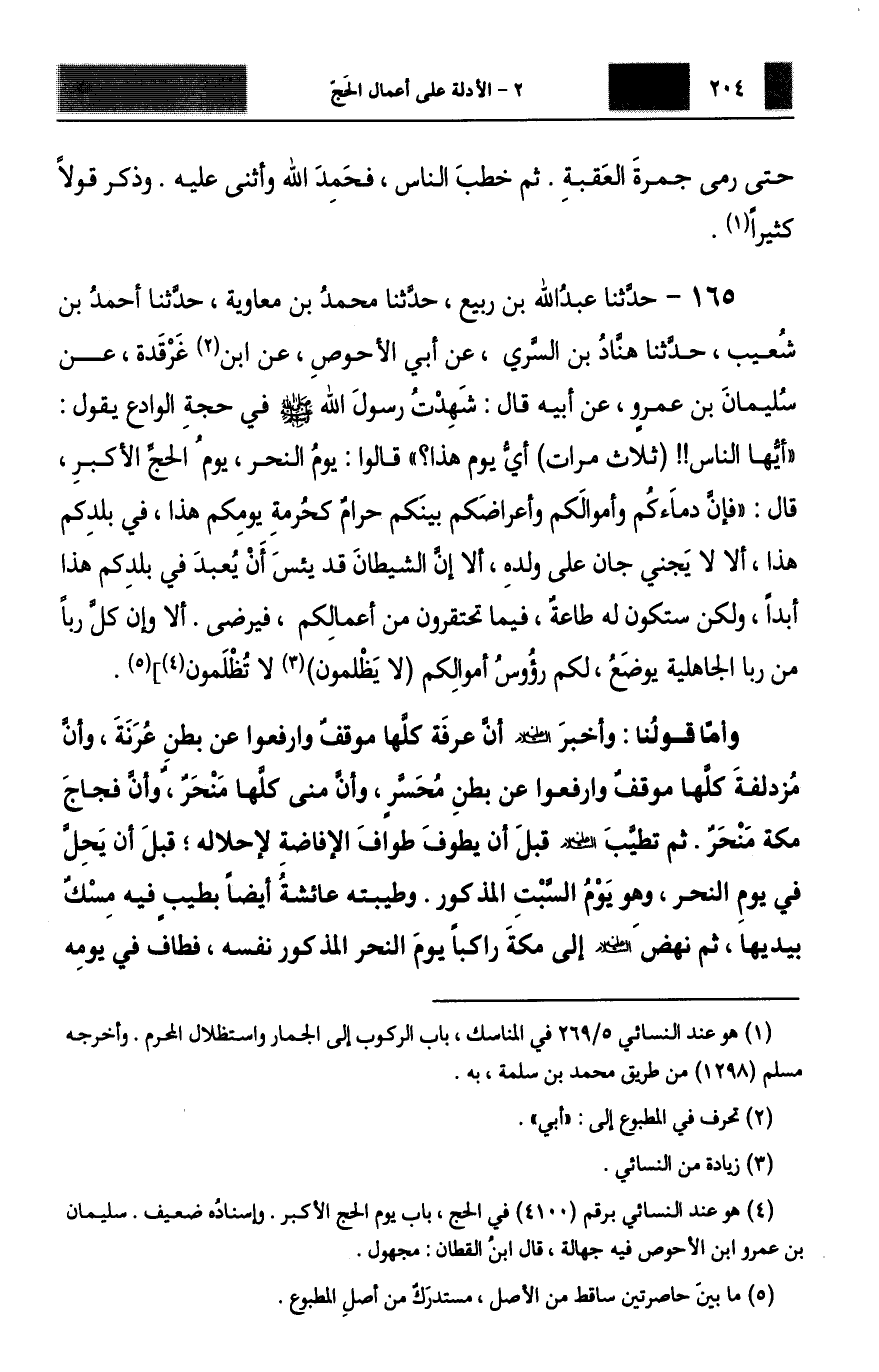 ٢٠٤
٢ - الأدلة على أعمال الحَجّ
حتى رمى جمرةَ العَقبةِ . ثم خطبَ الناس ، فحَمِدَ الله وأثنى عليه . وذكر قولاً
كثيراً(١) .
١٦٥ - حدَّثنا عبدُالله بن ربيع ، حدَّثنا محمدُ بن معاوية ، حدَّثنا أحمدُ بن
شُعيب ، حدَّثنا هنَّادُ بن السَّري ، عن أبي الأحوصِ ، عن ابن(٢) غَرْقَدة ، عن
سُليمانَ بن عمرٍو ، عن أبيه قال : شَهِدْتُ رسولَ الله ﷺ في حجةِ الوادع يقول :
«أيُّها الناس!! (ثلاث مرات) أيُّ يوم هذا؟» قالوا : يومُ النحرِ ، يومُ الحجِّ الأكبرِ ،
قال : «فإنَّ دماءَكُم وأموالَكم وأعراضَكم بينَكم حرامٌ كحُرمةِ يومِكم هذا ، في بلدِكم
هذا ، ألا لا يَجني جان على ولدهِ ، ألا إنَّ الشيطانَ قد يئسَ أَنْ يُعبدَ في بلدِكم هذا
أبداً ، ولكن ستكون له طاعةٌ ، فيما تحتقرون من أعمالِكم ، فيرضى . ألا وإن كلَّ رباً
من ربا الجاهلية يوضَعُ ، لكم رؤُوسُ أموالِكم (لا يَظْلمون)(٣) لا تُظْلَمون(٤)](٥) .
وأمّا قولُنا : وأخبرَ ﷺ أنَّ عرفَة كلَّها موقفٌ وارفعوا عن بطنِ عُرَنَةَ ، وأنَّ
مُزدلفةَ كلَّها موقفٌ وارفعوا عن بطنِ مُحَسَّرٍ ، وأنَّ منى كلَّها مَنْحَرٌ ، وأنَّ فجاجَ
مكة مَنْحَرٌ . ثم تطيَّبَ ﷺ قبلَ أن يطوفَ طوافَ الإفاضةِ لإحلاله ؛ قبلَ أن يَحِلَّ
في يومِ النحر ، وهو يَوْمُ السَّبْتِ المذكور . وطيبته عائشةُ أيضاً بطيبٍ فيه مِسْكٌ
بيديها ، ثم نهضَ ﷺ إلى مكةَ راكباً يومَ النحر المذكور نفسه ، فطاف في يومِه
(١) هو عند النسائي ٢٦٩/٥ في المناسك ، باب الركوب إلى الجمار واستظلال المحرم . وأخرجه
مسلم (١٢٩٨) من طريق محمد بن سلمة ، به .
(٢) تحرف في المطبوع إلى : «أبي» .
(٣) زيادة من النسائي .
(٤) هو عند النسائي برقم (٤١٠٠) في الحج ، باب يوم الحج الأكبر . وإسنادُه ضعيف . سليمان
بن عمرو ابن الأحوص فيه جهالة ، قال ابنُ القطان : مجهول .
(٥) ما بينَ حاصرتين ساقط من الأصل ، مستدرَكٌ من أصلِ المطبوع .